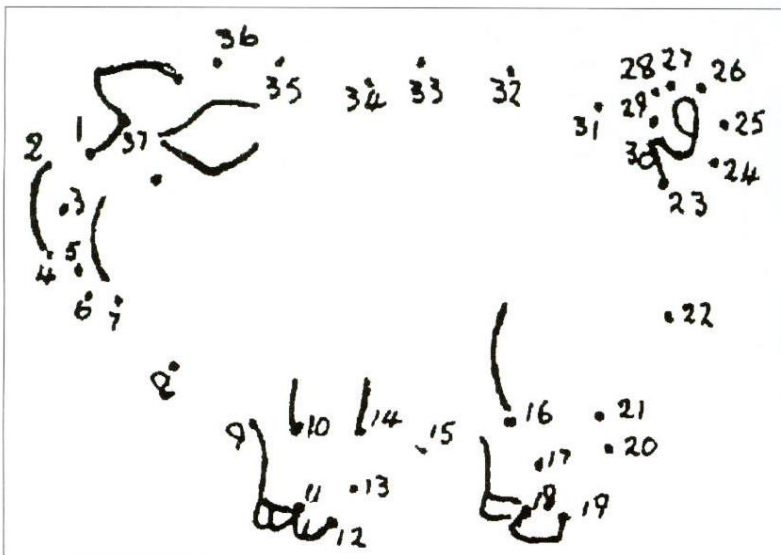 36
35
34
33
32
28 27 26
31
29
25
1
37
30
24
2
23
3
5
4
6
7
22
8
9
10
14
15
16
21
17
20
11
13
18
19
12